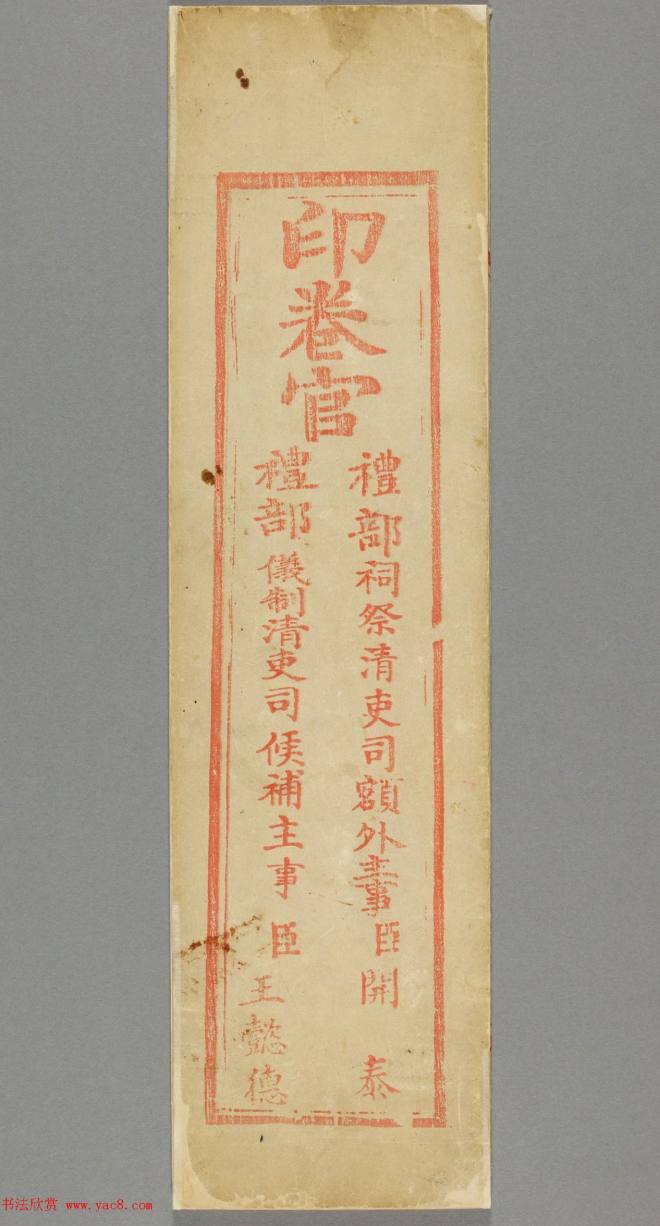 印卷官
禮部祠祭清吏司額外主事臣開泰
禮部儀制清吏司候補主事臣王懿德
书法欣赏 www.yac8.com